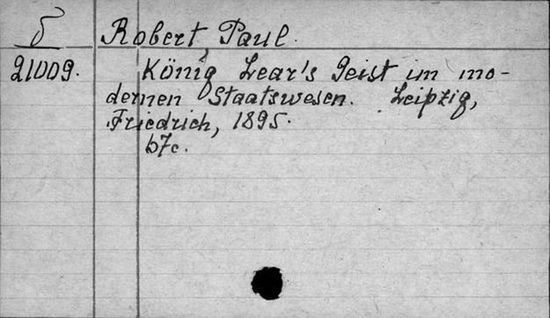 δ Robert, Paul.
21009. König Lear's Geist im mo-
dernen Staatswesen. Leipzig,
Friedrich, 1895.
67c.